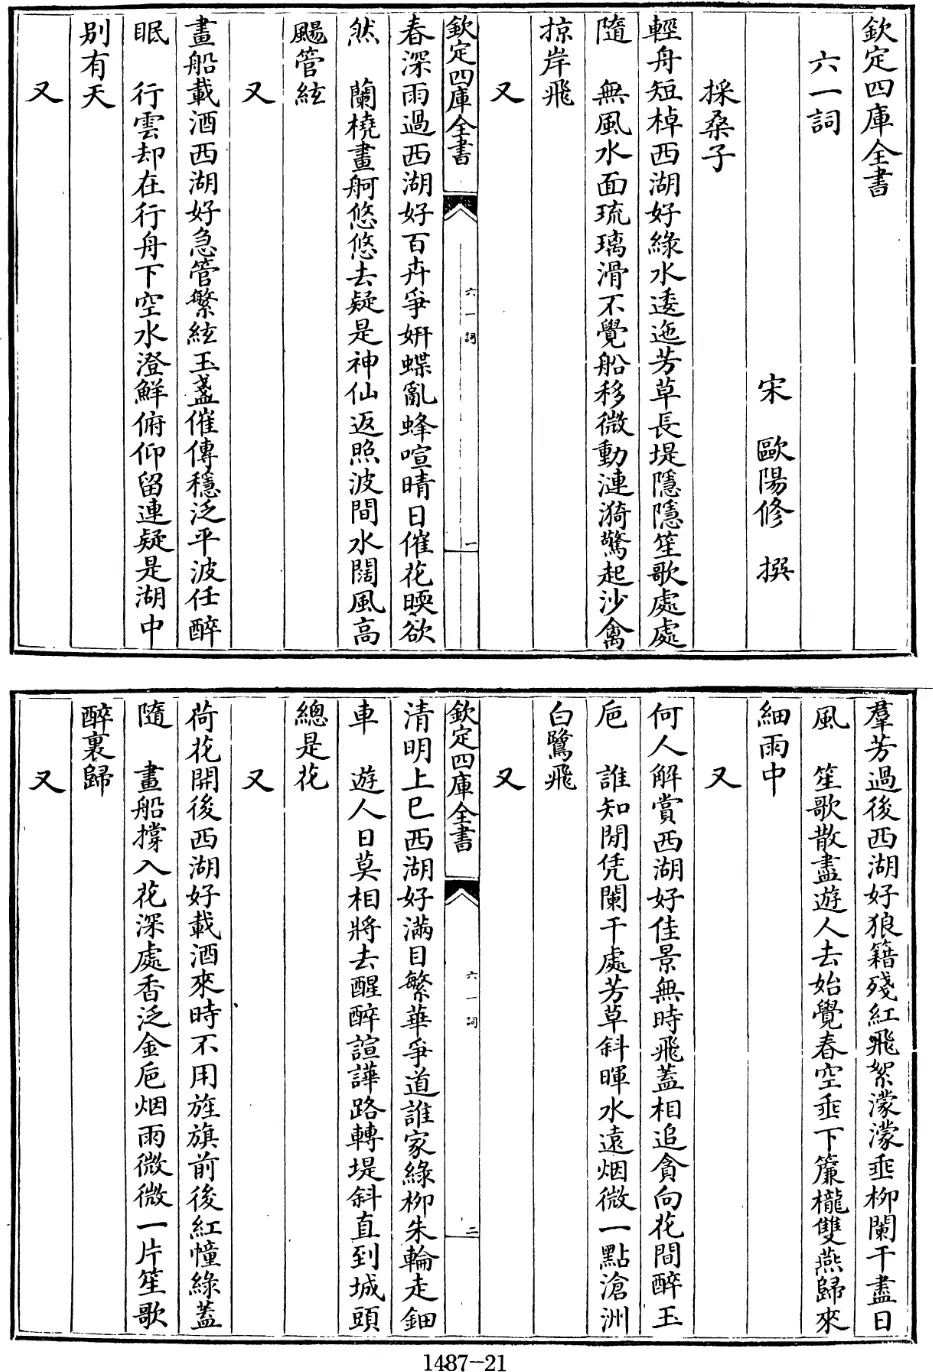 欽定四庫全書
六一詞
宋 歐陽修 撰
採桑子
輕舟短棹西湖好綠水逶迤芳草長堤隱隱笙歌處處
隨 無風水面琉璃滑不覺船移微動漣漪驚起沙禽
掠岸飛
又
欽定四庫全書
六一詞
一
春深雨過西湖好百卉爭妍蝶亂蜂喧晴日催花暎欲
然 蘭橈畫舸悠悠去疑是神仙返照波間水闊風高
颺管絃
又
畫船載酒西湖好急管繁絃玉盞催傳穩泛平波任醉
眠 行雲却在行舟下空水澄鮮俯仰留連疑是湖中
别有天
又
羣芳過後西湖好狼籍殘紅飛絮濛濛垂柳闌干盡日
風 笙歌散盡遊人去始覺春空垂下簾櫳雙燕歸來
細雨中
又
何人解賞西湖好佳景無時飛蓋相追貪向花間醉玉
巵 誰知閒凭闌干處芳草斜暉水遠烟微一點滄洲
白鷺飛
又
欽定四庫全書
六一詞
二
清明上巳西湖好滿目繁華爭道誰家綠柳朱輪走鈿
車 遊人日莫相將去醒醉諠譁路轉堤斜直到城頭
總是花
又
荷花開後西湖好載酒來時不用旌旗前後紅幢綠蓋
隨 畫船撐入花深處香泛金巵烟雨微微一片笙歌
醉裏歸
又
1487-21